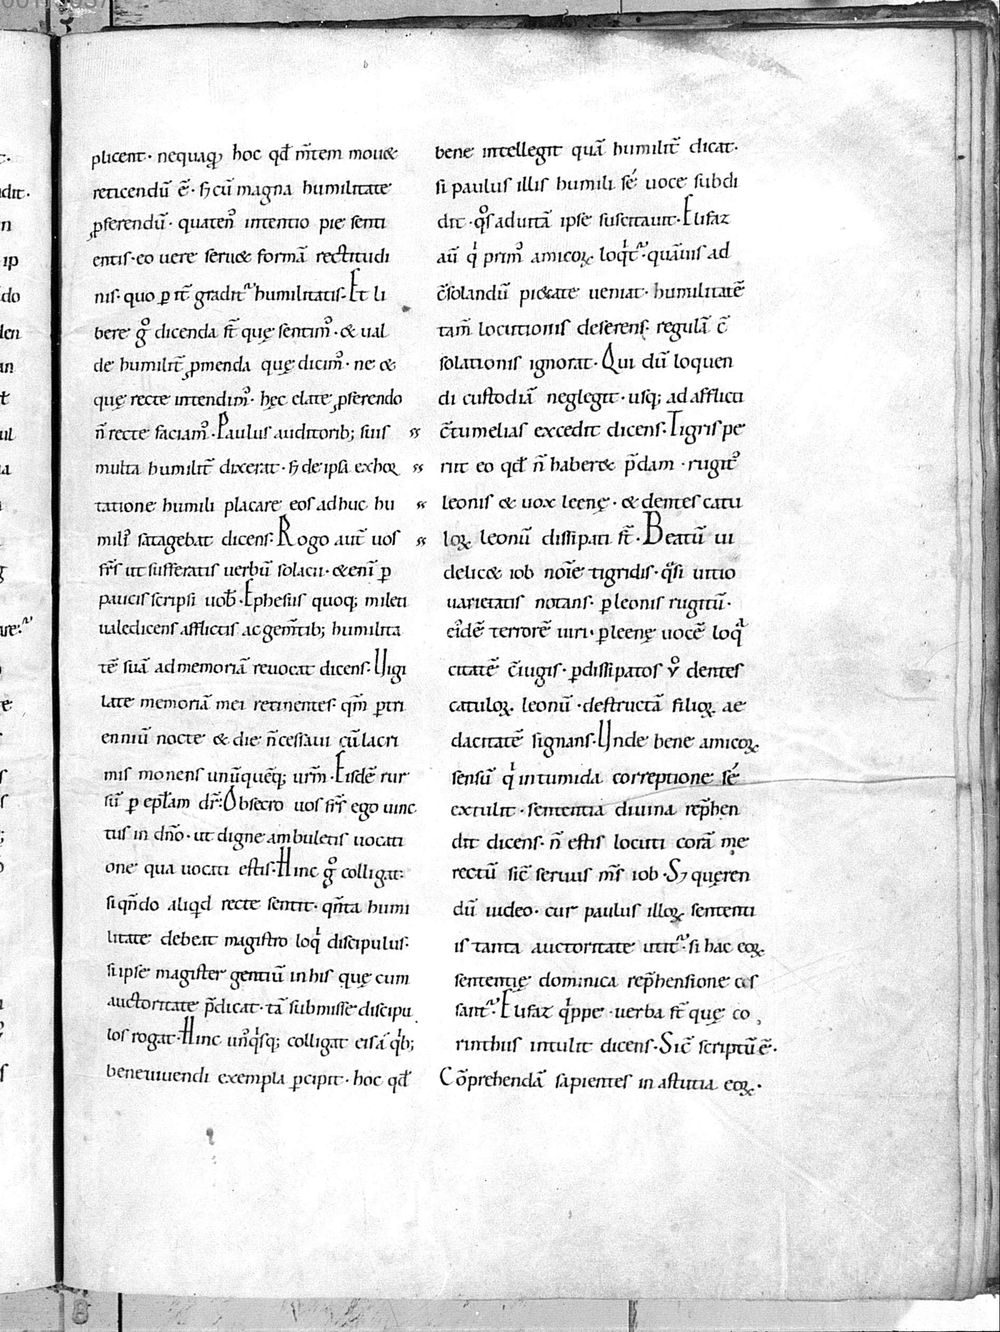 plicent· nequaq̃, hoc qd̃ m̃tem moue&
reticendũ ẽ· sꝫ cũ magna humilitate
ꝓferendũ· quatenꝰ intentio pie senti
entis· eo uere seru& formã rectitudi
nis· quo ꝑ it̃ gradit᷑ humilitatis· Et li
bere g̊ dicenda st̃ quę sentimꝰ· & ual
de humilit̃ ꝓmenda quę dicimꝰ· ne &
quę recte intendimꝰ· hęc elate ꝓferendo
ñ recte faciamꝰ· Paulus auditorib; suis
multa humilit̃ dixerat· sꝫ de ipsa exhoꝛ
tatione humili placare eos adhuc hu
milĩ satagebat dicens· Rogo aut̃ uos
fr̃s ut sufferatis uerbũ solacii· & eni ̃ ꝑ
paucis scripsi uob̃· Ephesiis quoq; mileti
ualedicens afflictis ac gem̃tib; humilita
tẽ suã ad memoriã reuocat dicens· Uigi
late memoriã mei retinentes· qm̃ ꝑ tri
enniũ nocte & die ñ cessaui cũ lacri
mis monens unũquẽq; urm̃· Eisdẽ rur
sũ ꝑ ept̃am dr̃: Obsecro uos fr̃s ego uinc
tus in dño· ut digne ambuletis uocati
one qua uocati estis· Hinc g̊ colligat:
si qñdo aliqd recte sentit· qñta humi
litate debeat magistro loqͥ discipulus·
si ipse magister gentiũ in his quę cum
auctoritate p̃dicat· tã submisse discipu
los rogat· Hinc unꝰqͥsq; colligat eis a qͥb;
bene uiuendi exempla ꝑcipit· hoc qd̃
bene intellegit quã humilit̃ dicat·
si paulus illis humili sẽ uoce subdi
dit· qͦs ad uitã ipse suscitauit· Elifaz
aũ qͥ primꝰ amicoꝝ loqͥt᷑· quãuis ad
c̃solandũ pi&ate ueniat· humilitatẽ
tam̃ locutionis deserens· regulã c̃
solationis ignorat· Qui dũ loquen
di custodiã neglegit· usq; ad afflicti
c̃tumelias excedit dicens· Tigris pe
riit eo qd̃ ñ haber& p̃dam· rugitꝰ
leonis & uox leenę· & dentes catu
loꝝ leonũ dissipati st̃· Beatũ ui
delic& iob noı̃e tigridis· qͣsi uitio
uarietatis notans· ꝑ leonis rugitũ·
eı̊dẽ terrorẽ uiri· ꝑ leenę uocẽ loqͣ
citatẽ c̃iugis· ꝑ dissipatos v̊ dentes
catuloꝝ leonũ· destructã filioꝝ ae
dacitatẽ signans· Unde bene amicoꝝ
sensũ qͥ in tumida correptione sẽ
extulit· sententia diuina rep̃hen
dit dicens· ñ estis locuti corã me
rectũ sic̃ seruus m̃s iob· Sꝫ queren
dũ uideo· cur paulus illoꝝ sententi
is tanta auctoritate utit᷑· si hac eoꝝ
sententię dominica rep̃hensione ces
sant᷑· Elifaz qͥppe· uerba st̃ quę co
rinthiis intulit dicens· Sic̃ scriptũ ẽ·
Cõprehendã sapientes in astutia eoꝝ·